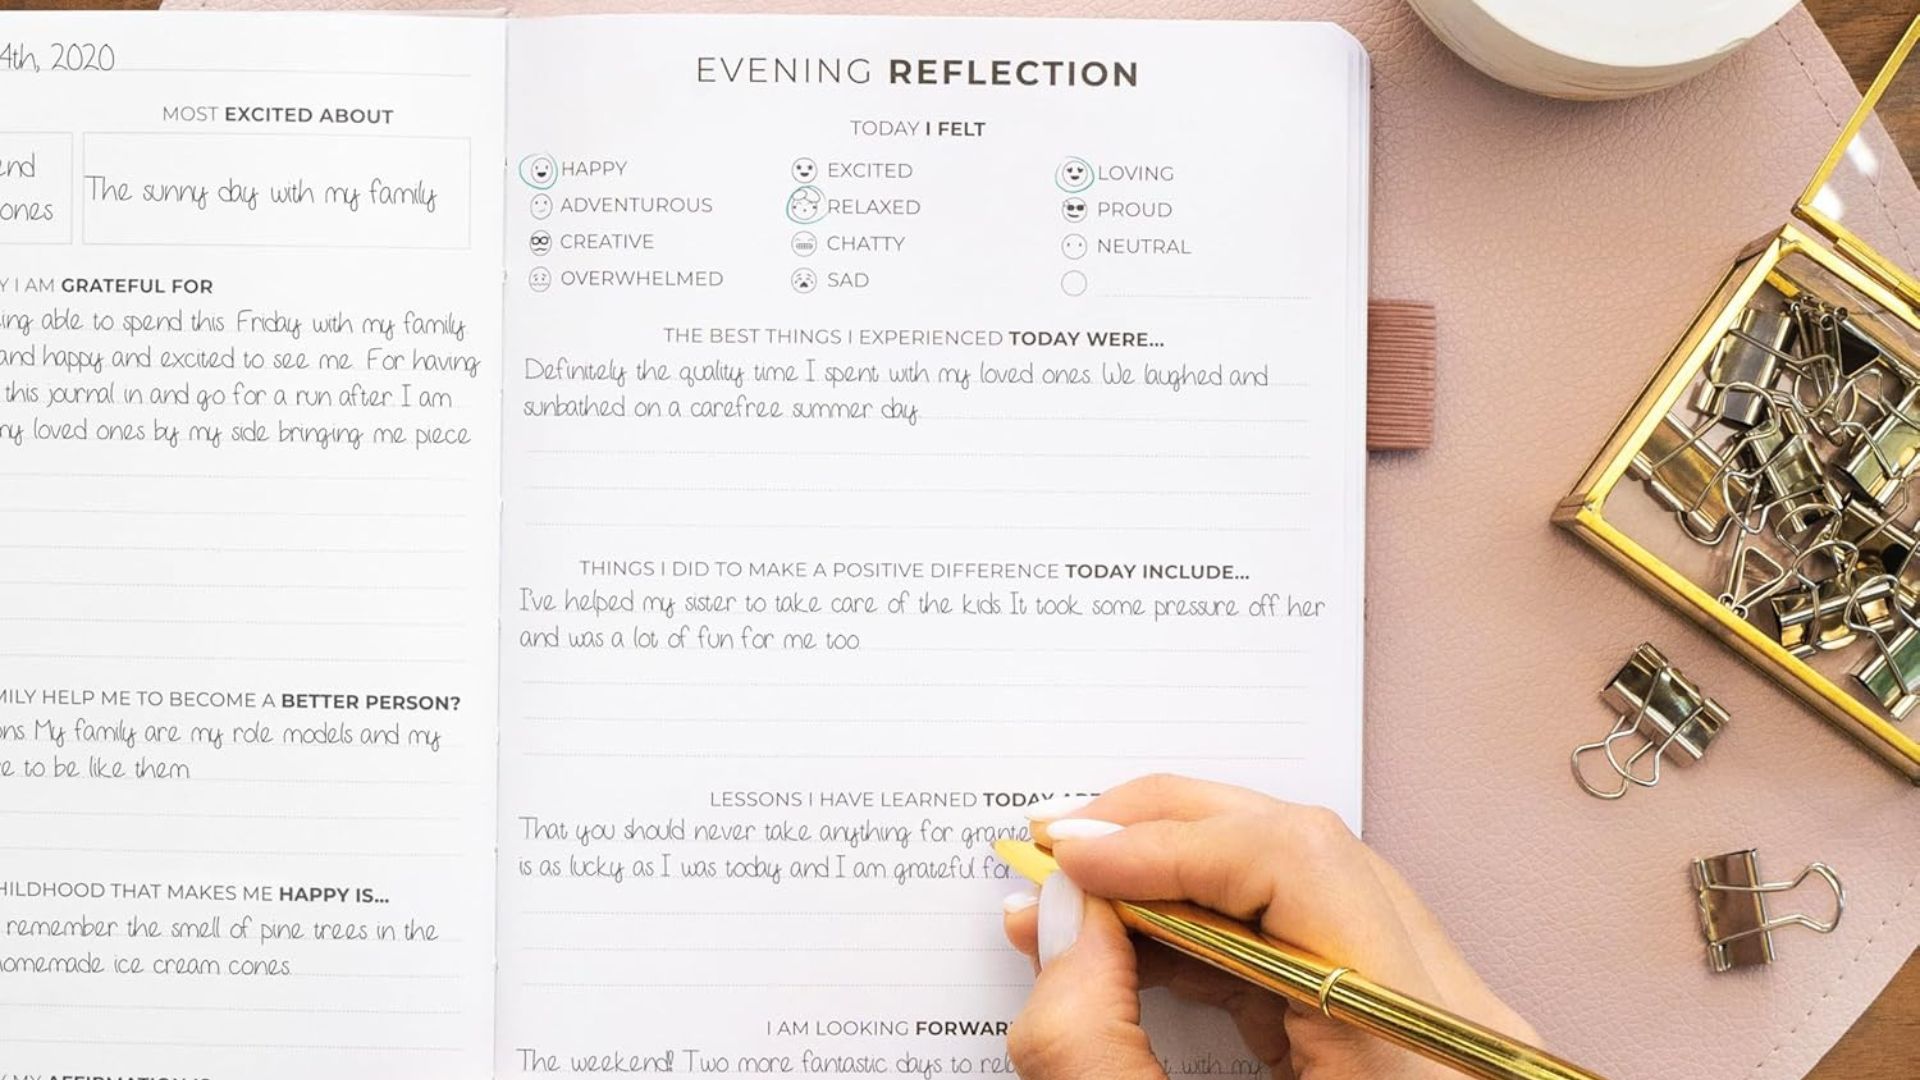 4th, 2020
MOST EXCITED ABOUT
end
ones
The sunny day with my family
Y I AM GRATEFUL FOR
ing able to spend this Friday with my family
and happy and excited to see me For having
this journal in and go for a run after I am
my loved ones by my side bringing me piece
MILY HELP ME TO BECOME A BETTER PERSON?
ons. My family are my role models and my
e to be like them
HILDHOOD THAT MAKES ME HAPPY IS...
remember the smell of pine trees in the
omemade ice cream cones.
MY AFFIRMATION IS
EVENING REFLECTION
TODAY I FELT
HAPPY EXCITED LOVING
ADVENTUROUS RELAXED PROUD
CREATIVE CHATTY NEUTRAL
OVERWHELMED SAD
THE BEST THINGS I EXPERIENCED TODAY WERE...
Definitely the quality time I spent with my loved ones. We laughed and
sunbathed on a carefree summer day.
THINGS I DID TO MAKE A POSITIVE DIFFERENCE TODAY INCLUDE...
I've helped my sister to take care of the kids. It took some pressure off her
and was a lot of fun for me too.
LESSONS I HAVE LEARNED TODAY ARE
That you should never take anything for grante
is as lucky as I was today and I am grateful for
I AM LOOKING FORWAR
The weekend! Two more fantastic days to rel with my